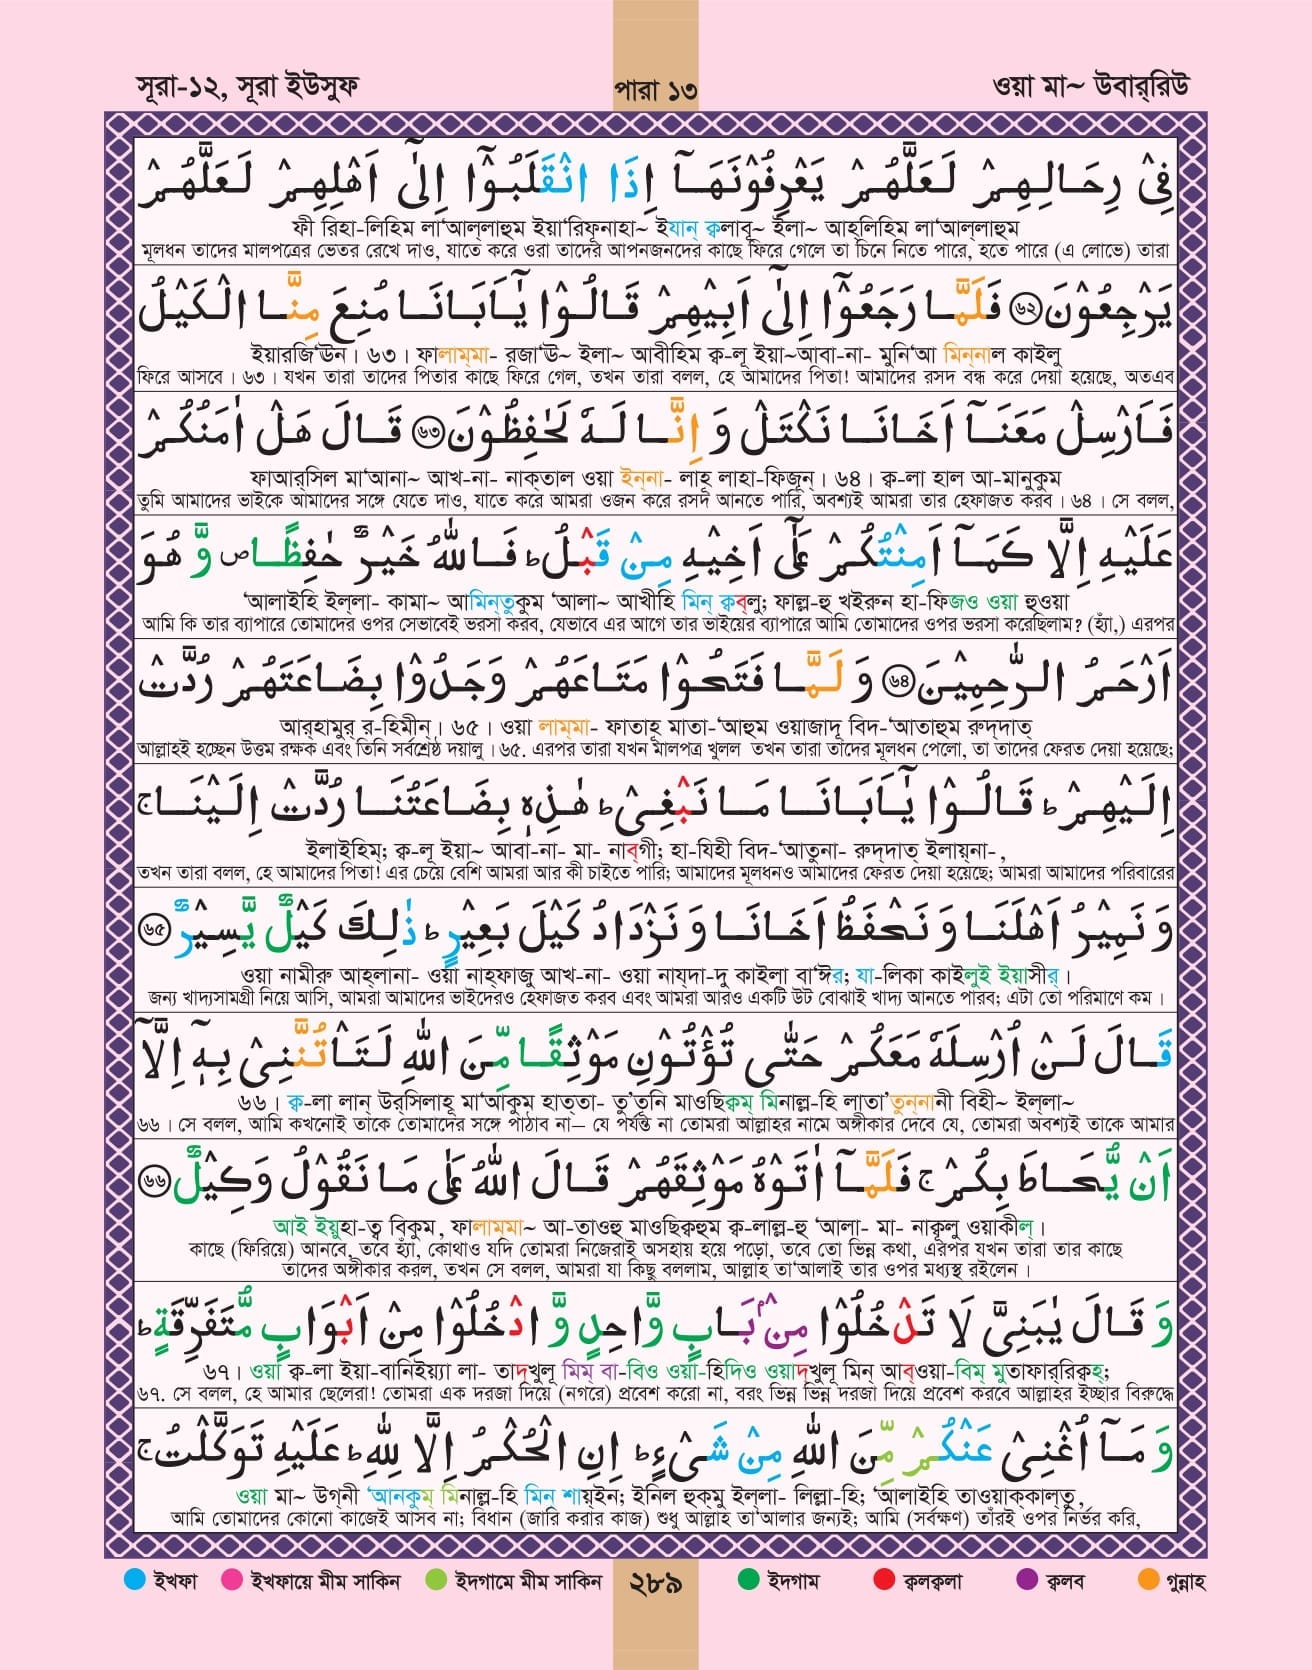 সূরা-১২, সূরা ইউসুফ
পারা ১৩
ওয়া মা~ উবার্‌রিউ
فِىْ رِحَالِهِمْ لَعَلَّهُمْ يَعْرِفُوْنَهَاۤ اِذَا انْقَلَبُوْۤا اِلٰۤى اَهْلِهِمْ لَعَلَّهُمْ
ফী রিহা-লিহিম লা‘আল্‌লাহুম ইয়া‘রিফূনাহা~ ইযান্‌ ক্বলাবূ~ ইলা~ আহ্‌লিহিম লা‘আল্‌লাহুম
মূলধন তাদের মালপত্রের ভেতর রেখে দাও, যাতে করে ওরা তাদের আপনজনদের কাছে ফিরে গেলে তা চিনে নিতে পারে, হতে পারে (এ লোভে) তারা
يَرْجِعُوْنَ ۝٦٢ فَلَمَّا رَجَعُوْۤا اِلٰۤى اَبِيْهِمْ قَالُوْا يٰۤاَبَانَا مُنِعَ مِنَّا الْكَيْلُ
ইয়ারজি‘ঊন। ৬৩। ফালাম্‌মা- রজা‘ঊ~ ইলা~ আবীহিম ক্ব-লূ ইয়া~আবা-না- মুনি‘আ মিন্‌নাল কাইলু
ফিরে আসবে। ৬৩। যখন তারা তাদের পিতার কাছে ফিরে গেল, তখন তারা বলল, হে আমাদের পিতা! আমাদের রসদ বন্ধ করে দেয়া হয়েছে, অতএব
فَاَرْسِلْ مَعَنَاۤ اَخَانَا نَكْتَلْ وَ اِنَّا لَهٗ لَحٰفِظُوْنَ ۝٦٣ قَالَ هَلْ اٰمَنُكُمْ
ফাআর্‌সিল মা‘আনা~ আখ-না- নাক্‌তাল ওয়া ইন্‌না- লাহূ লাহা-ফিজূন্‌। ৬৪। ক্ব-লা হাল আ-মানুকুম
তুমি আমাদের ভাইকে আমাদের সঙ্গে যেতে দাও, যাতে করে আমরা ওজন করে রসদ আনতে পারি, অবশ্যই আমরা তার হেফাজত করব। ৬৪। সে বলল,
عَلَيْهِ اِلَّا كَمَاۤ اَمِنْتُكُمْ عَلٰۤى اَخِيْهِ مِنْ قَبْلُ ؕ فَاللّٰهُ خَيْرٌ حٰفِظًا ۪ وَّ هُوَ
‘আলাইহি ইল্‌লা- কামা~ আমিন্‌তুকুম ‘আলা~ আখীহি মিন্‌ ক্বব্‌লু; ফাল্ল-হু খইরুন হা-ফিজও ওয়া হুওয়া
আমি কি তার ব্যাপারে তোমাদের ওপর সেভাবেই ভরসা করব, যেভাবে এর আগে তার ভাইয়ের ব্যাপারে আমি তোমাদের ওপর ভরসা করেছিলাম? (হ্যাঁ,) এরপর
اَرْحَمُ الرّٰحِمِيْنَ ۝٦٤ وَ لَمَّا فَتَحُوْا مَتَاعَهُمْ وَجَدُوْا بِضَاعَتَهُمْ رُدَّتْ
আর্‌হামুর্‌ র-হিমীন্‌। ৬৫। ওয়া লাম্‌মা- ফাতাহূ মাতা-‘আহুম ওয়াজাদূ বিদ-‘আতাহুম রুদ্‌দাত্‌
আল্লাহই হচ্ছেন উত্তম রক্ষক এবং তিনি সর্বশ্রেষ্ঠ দয়ালু। ৬৫. এরপর তারা যখন মালপত্র খুলল তখন তারা তাদের মূলধন পেলো, তা তাদের ফেরত দেয়া হয়েছে;
اِلَيْهِمْ ؕ قَالُوْا يٰۤاَبَانَا مَا نَبْغِىْ ؕ هٰذِهٖ بِضَاعَتُنَا رُدَّتْ اِلَيْنَا ۚ
ইলাইহিম্‌; ক্ব-লূ ইয়া~ আবা-না- মা- নাব্‌গী; হা-যিহী বিদ-‘আতুনা- রুদ্‌দাত্‌ ইলায়্‌না-,
তখন তারা বলল, হে আমাদের পিতা! এর চেয়ে বেশি আমরা আর কী চাইতে পারি; আমাদের মূলধনও আমাদের ফেরত দেয়া হয়েছে; আমরা আমাদের পরিবারের
وَ نَمِيْرُ اَهْلَنَا وَ نَحْفَظُ اَخَانَا وَ نَزْدَادُ كَيْلَ بَعِيْرٍ ؕ ذٰلِكَ كَيْلٌ يَّسِيْرٌ ۝٦٥
ওয়া নামীরু আহ্‌লানা- ওয়া নাহ্‌ফাজু আখ-না- ওয়া নায্‌দা-দু কাইলা বা‘ঈর; যা-লিকা কাইলুই ইয়াসীর্‌।
জন্য খাদ্যসামগ্রী নিয়ে আসি, আমরা আমাদের ভাইদেরও হেফাজত করব এবং আমরা আরও একটি উট বোঝাই খাদ্য আনতে পারব; এটা তো পরিমাণে কম।
قَالَ لَنْ اُرْسِلَهٗ مَعَكُمْ حَتّٰى تُؤْتُوْنِ مَوْثِقًا مِّنَ اللّٰهِ لَتَاْتُنَّنِىْ بِهٖۤ اِلَّاۤ
৬৬। ক্ব-লা লান্‌ উর্‌সিলাহূ মা‘আকুম হাত্‌তা- তু’তূনি মাওছিক্বম্‌ মিনাল্ল-হি লাতা’তুন্‌নানী বিহী~ ইল্‌লা~
৬৬। সে বলল, আমি কখনোই তাকে তোমাদের সঙ্গে পাঠাব না— যে পর্যন্ত না তোমরা আল্লাহর নামে অঙ্গীকার দেবে যে, তোমরা অবশ্যই তাকে আমার
اَنْ يُّحَاطَ بِكُمْ ۚ فَلَمَّاۤ اٰتَوْهُ مَوْثِقَهُمْ قَالَ اللّٰهُ عَلٰى مَا نَقُوْلُ وَكِيْلٌ ۝٦٦
আই ইয়ুহা-ত্ব বিকুম, ফালামমা~ আ-তাওহু মাওছিক্বহুম ক্ব-লাল্ল-হু ‘আলা- মা- নাক্বূলু ওয়াকীল্‌।
কাছে (ফিরিয়ে) আনবে, তবে হ্যাঁ, কোথাও যদি তোমরা নিজেরাই অসহায় হয়ে পড়ো, তবে তো ভিন্ন কথা, এরপর যখন তারা তার কাছে
তাদের অঙ্গীকার করল, তখন সে বলল, আমরা যা কিছু বললাম, আল্লাহ তা‘আলাই তার ওপর মধ্যস্থ রইলেন।
وَ قَالَ يٰبَنِىَّ لَا تَدْخُلُوْا مِنْۢ بَابٍ وَّاحِدٍ وَّ ادْخُلُوْا مِنْ اَبْوَابٍ مُّتَفَرِّقَةٍ ؕ
৬৭। ওয়া ক্ব-লা ইয়া-বানিইয়্যা লা- তাদ্‌খুলূ মিম্‌ বা-বিও ওয়া-হিদিও ওয়াদ্‌খুলূ মিন আব্‌ওয়া-বিম্‌ মুতাফার্‌রিক্বহ্‌;
৬৭. সে বলল, হে আমার ছেলেরা! তোমরা এক দরজা দিয়ে (নগরে) প্রবেশ করো না, বরং ভিন্ন ভিন্ন দরজা দিয়ে প্রবেশ করবে আল্লাহর ইচ্ছার বিরুদ্ধে
وَ مَاۤ اُغْنِىْ عَنْكُمْ مِّنَ اللّٰهِ مِنْ شَىْءٍ ؕ اِنِ الْحُكْمُ اِلَّا لِلّٰهِ ؕ عَلَيْهِ تَوَكَّلْتُ ۚ
ওয়া মা~ উগ্‌নী ‘আনকুম্‌ মিনাল্ল-হি মিন শায়্‌ইন; ইনিল হুক্‌মু ইল্‌লা- লিল্লা-হি; ‘আলাইহি তাওয়াক্কাল্‌তু,
আমি তোমাদের কোনো কাজেই আসব না; বিধান (জারি করার কাজ) শুধু আল্লাহ তা‘আলার জন্যই; আমি (সর্বক্ষণ) তাঁরই ওপর নির্ভর করি,
ইখফা
ইখফায়ে মীম সাকিন
ইদগামে মীম সাকিন
২৮৯
ইদগাম
ক্বলক্বলা
ক্বলব
গুন্নাহ